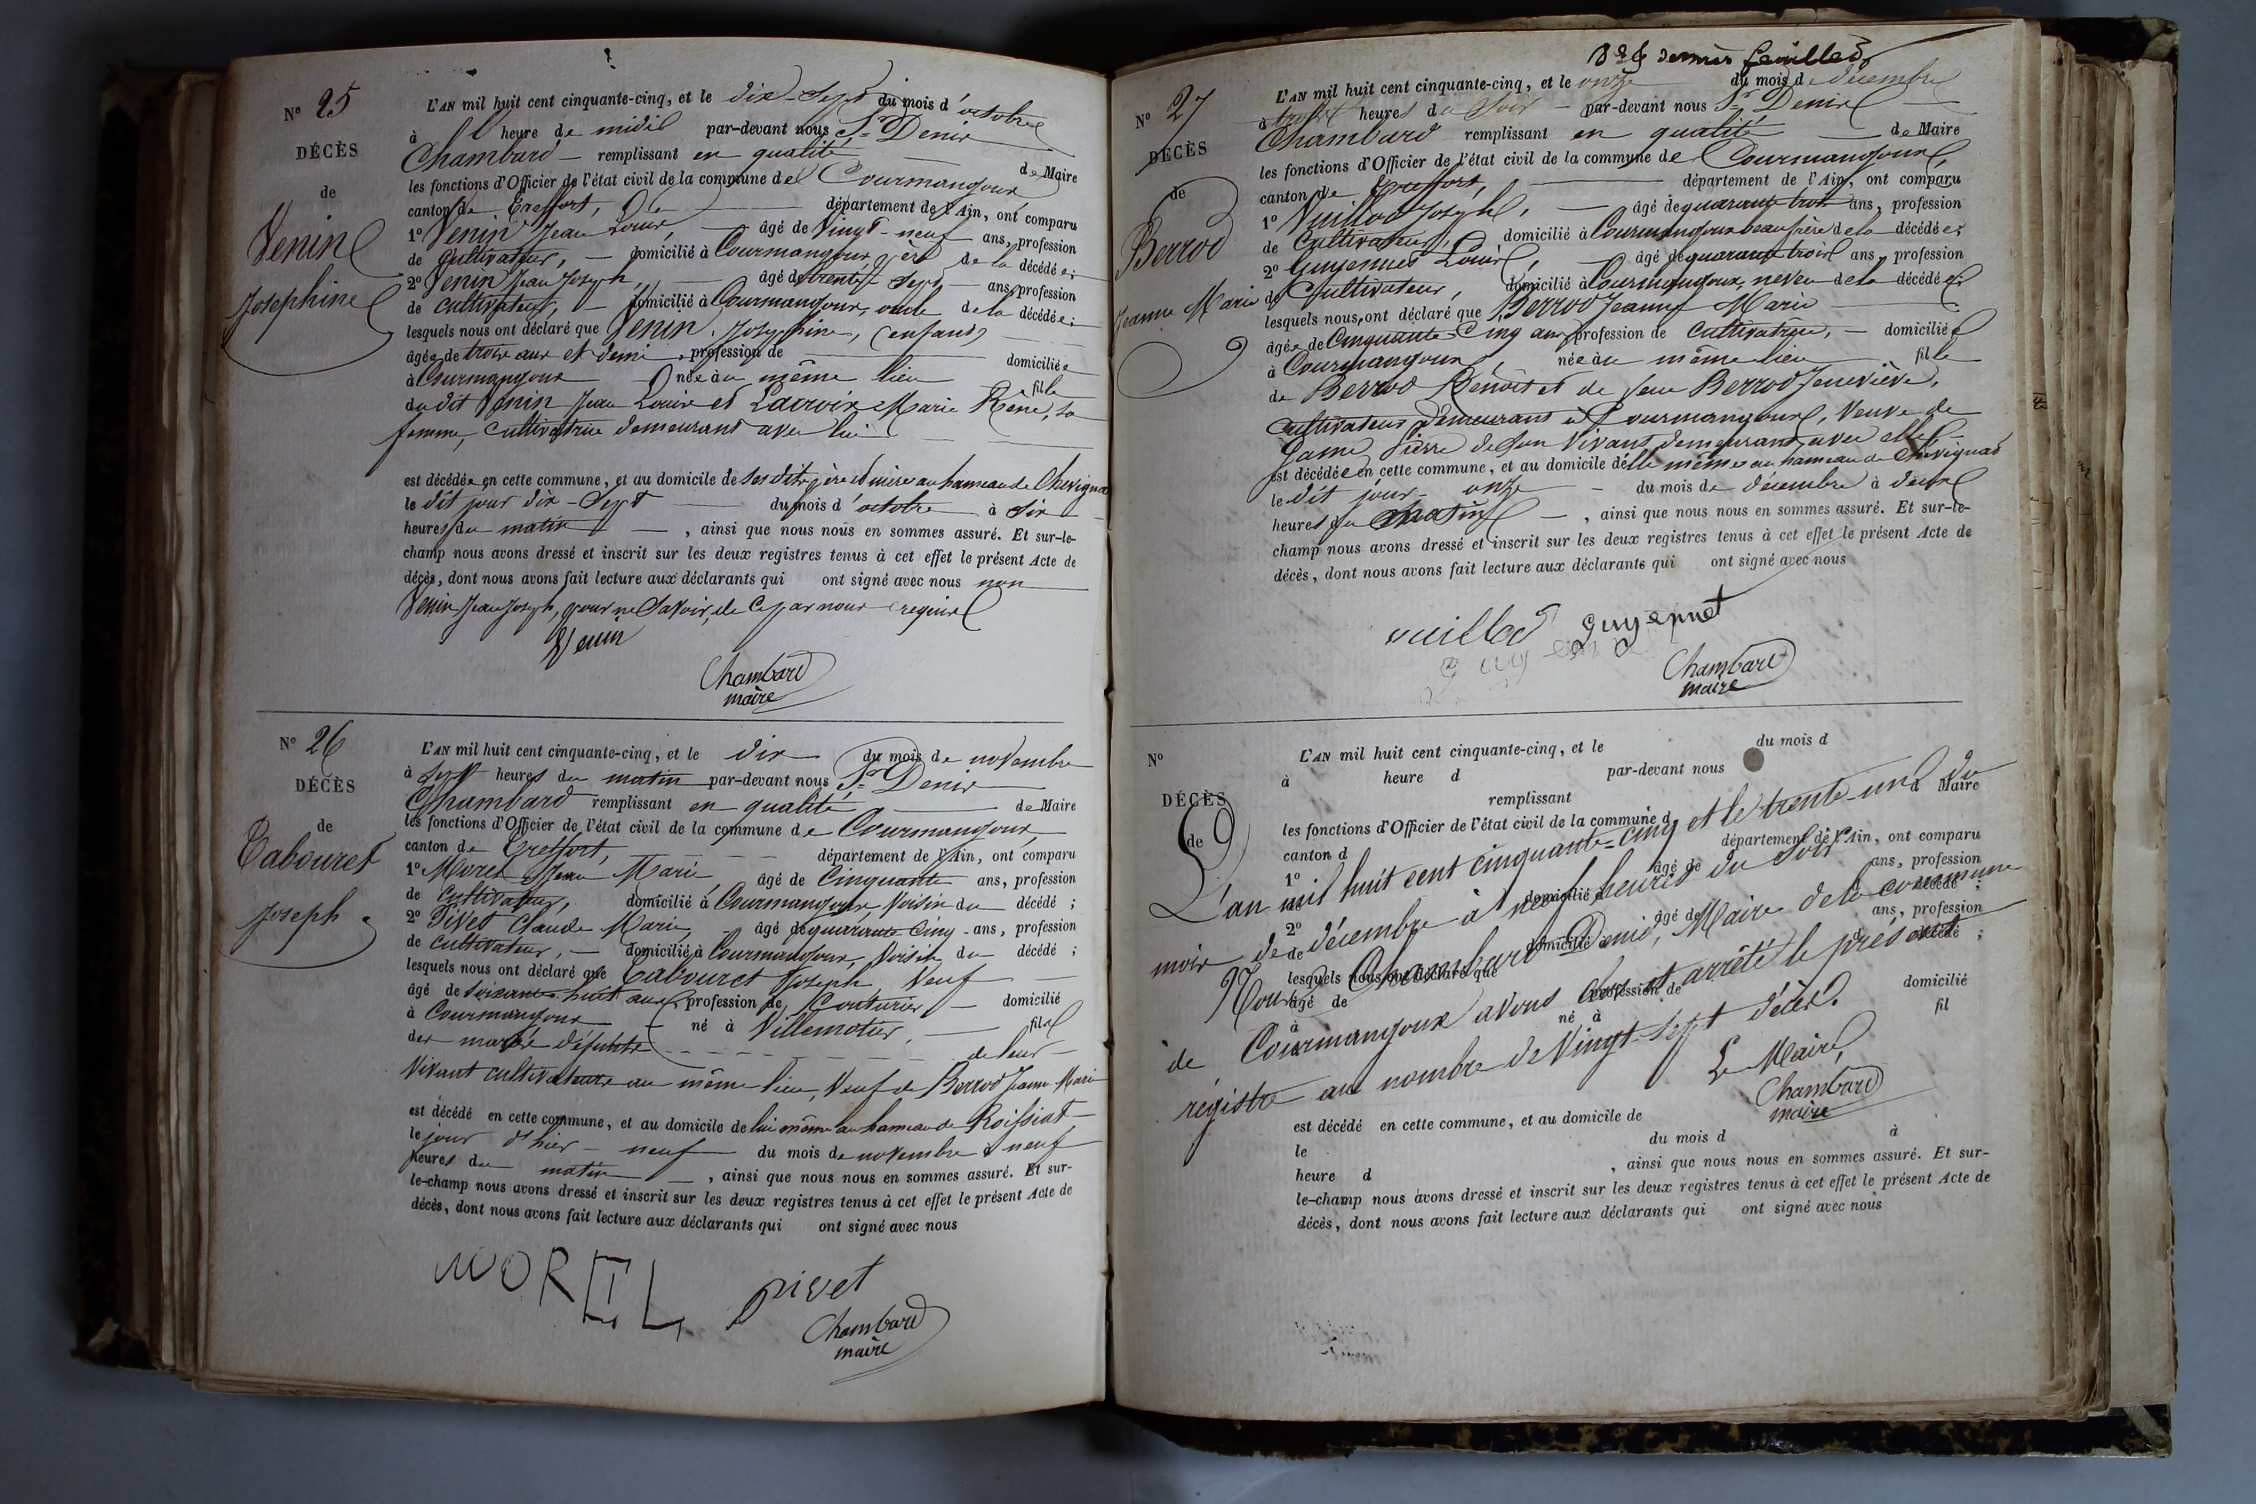 N° 25
DÉCÈS
de
Venin
Josephine
L'AN mil huit cent cinquante-cinq, et le dix-sept du mois d'octobre
à heure de midi par-devant nous Sr Denis
Chambard remplissant en qualité de Maire
les fonctions d'Officier de l'état civil de la commune de Courmangoux
canton de Treffort, département de l'Ain, ont comparu
1° Venin Jean Louis, âgé de Vingt-neuf ans, profession
de Cultivateur, domicilié à Courmangoux père de la décédée;
2° Venin Jean Joseph, âgé de trente sept ans, profession
de cultivateur, domicilié à Courmangoux, oncle de la décédée;
lesquels nous ont déclaré que Venin Josephine, (enfant)
âgée de trois ans et demi, profession de domiciliée
à Courmangoux née au même lieu fille
du dit Venin Jean Louis et Lacroix Marie Rêne, sa
femme, Cultivatrice demeurant avec lui
est décédée en cette commune, et au domicile de ses dits père et mère au hameau de Chevignat
le dit jour dix-sept du mois d'octobre à six
heures du matin, ainsi que nous nous en sommes assuré. Et sur-le-
champ nous avons dressé et inscrit sur les deux registres tenus à cet effet le présent Acte de
décès, dont nous avons fait lecture aux déclarants qui ont signé avec nous non
Venin Jean Joseph, pour ne savoir, de ce par nous requis
Venin
Chambard
maire
N° 26
DÉCÈS
de
Tabouret
Joseph
L'AN mil huit cent cinquante-cinq, et le dix du mois de novembre
à sept heures du matin par-devant nous Sr Denis
Chambard remplissant en qualité de Maire
les fonctions d'Officier de l'état civil de la commune de Courmangoux
canton de Treffort, département de l'Ain, ont comparu
1° Morel Jean Marie, âgé de Cinquante ans, profession
de cultivateur, domicilié à Courmangoux Voisin du décédé;
2° Pivet Claude Marie, âgé de quarante Cinq ans, profession
de cultivateur, domicilié à Courmangoux, Voisin du décédé;
lesquels nous ont déclaré que Tabouret Joseph, Veuf
âgé de soixante huit ans, profession de Couturier domicilié
à Courmangoux né à Villemotier, fils
des mariés défunts de leur
Vivant cultivateurs au même lieu, Veuf de Berrod Jeanne Marie
est décédé en cette commune, et au domicile de lui même au hameau de Roissiat
le jour d'hier neuf du mois de novembre à neuf
heures du matin, ainsi que nous nous en sommes assuré. Et sur-
le-champ nous avons dressé et inscrit sur les deux registres tenus à cet effet le présent Acte de
décès, dont nous avons fait lecture aux déclarants qui ont signé avec nous
MOREL pivet
Chambard
maire
dernier feuillet
N° 27
DÉCÈS
de
Berrod
Jeanne Marie
L'AN mil huit cent cinquante-cinq, et le onze du mois de décembre
à trois heures du soir par-devant nous Sr Denis
Chambard remplissant en qualité de Maire
les fonctions d'Officier de l'état civil de la commune de Courmangoux,
canton de Treffort, département de l'Ain, ont comparu
1° Vuillod Joseph, âgé de quarante trois ans, profession
de Cultivateur, domicilié à Courmangoux beau frère de la décédée;
2° Guyennet Louis, âgé de quarante trois ans, profession
de Cultivateur, domicilié à Courmangoux, neveu de la décédée;
lesquels nous ont déclaré que Berrod Jeanne Marie
âgée de Cinquante-Cinq ans, profession de cultivatrice, domiciliée
à Courmangoux, née au même lieu fille
de Berrod Benoit et de feue Berrod Jeneviève,
Cultivateur demeurant à Courmangoux, Veuve de
Jame Pierre de son Vivant demeurant avec elle
est décédée en cette commune, et au domicile d'elle même au hameau de Chevignat
le dit jour onze du mois de décembre à deux
heures du Matin, ainsi que nous nous en sommes assuré. Et sur-le-
champ nous avons dressé et inscrit sur les deux registres tenus à cet effet le présent Acte de
décès, dont nous avons fait lecture aux déclarants qui ont signé avec nous
vuillod guyennet
Chambard
maire
N°
DÉCÈS
de
L'AN mil huit cent cinquante-cinq, et le du mois d
à heure d par-devant nous
remplissant d Maire
les fonctions d'Officier de l'état civil de la commune d
canton d département de l'Ain, ont comparu
1° âgé de ans, profession
de domicilié à décédé ;
2° âgé de ans, profession
de domicilié à décédé ;
lesquels nous ont déclaré que
âgé de profession de domicilié
à né à fil
L'an mil huit cent cinquante-cinq et le trente-un du
mois de décembre à neuf heures du soir
Nous Chambard Denis, Maire de la commune
de Courmangoux avons clos et arrêté le présent
régistre au nombre de Vingt-Sept décès.
Le Maire,
Chambard
maire
est décédé en cette commune, et au domicile de
le du mois d à
heure d , ainsi que nous nous en sommes assuré. Et sur-
le-champ nous avons dressé et inscrit sur les deux registres tenus à cet effet le présent Acte de
décès, dont nous avons fait lecture aux déclarants qui ont signé avec nous